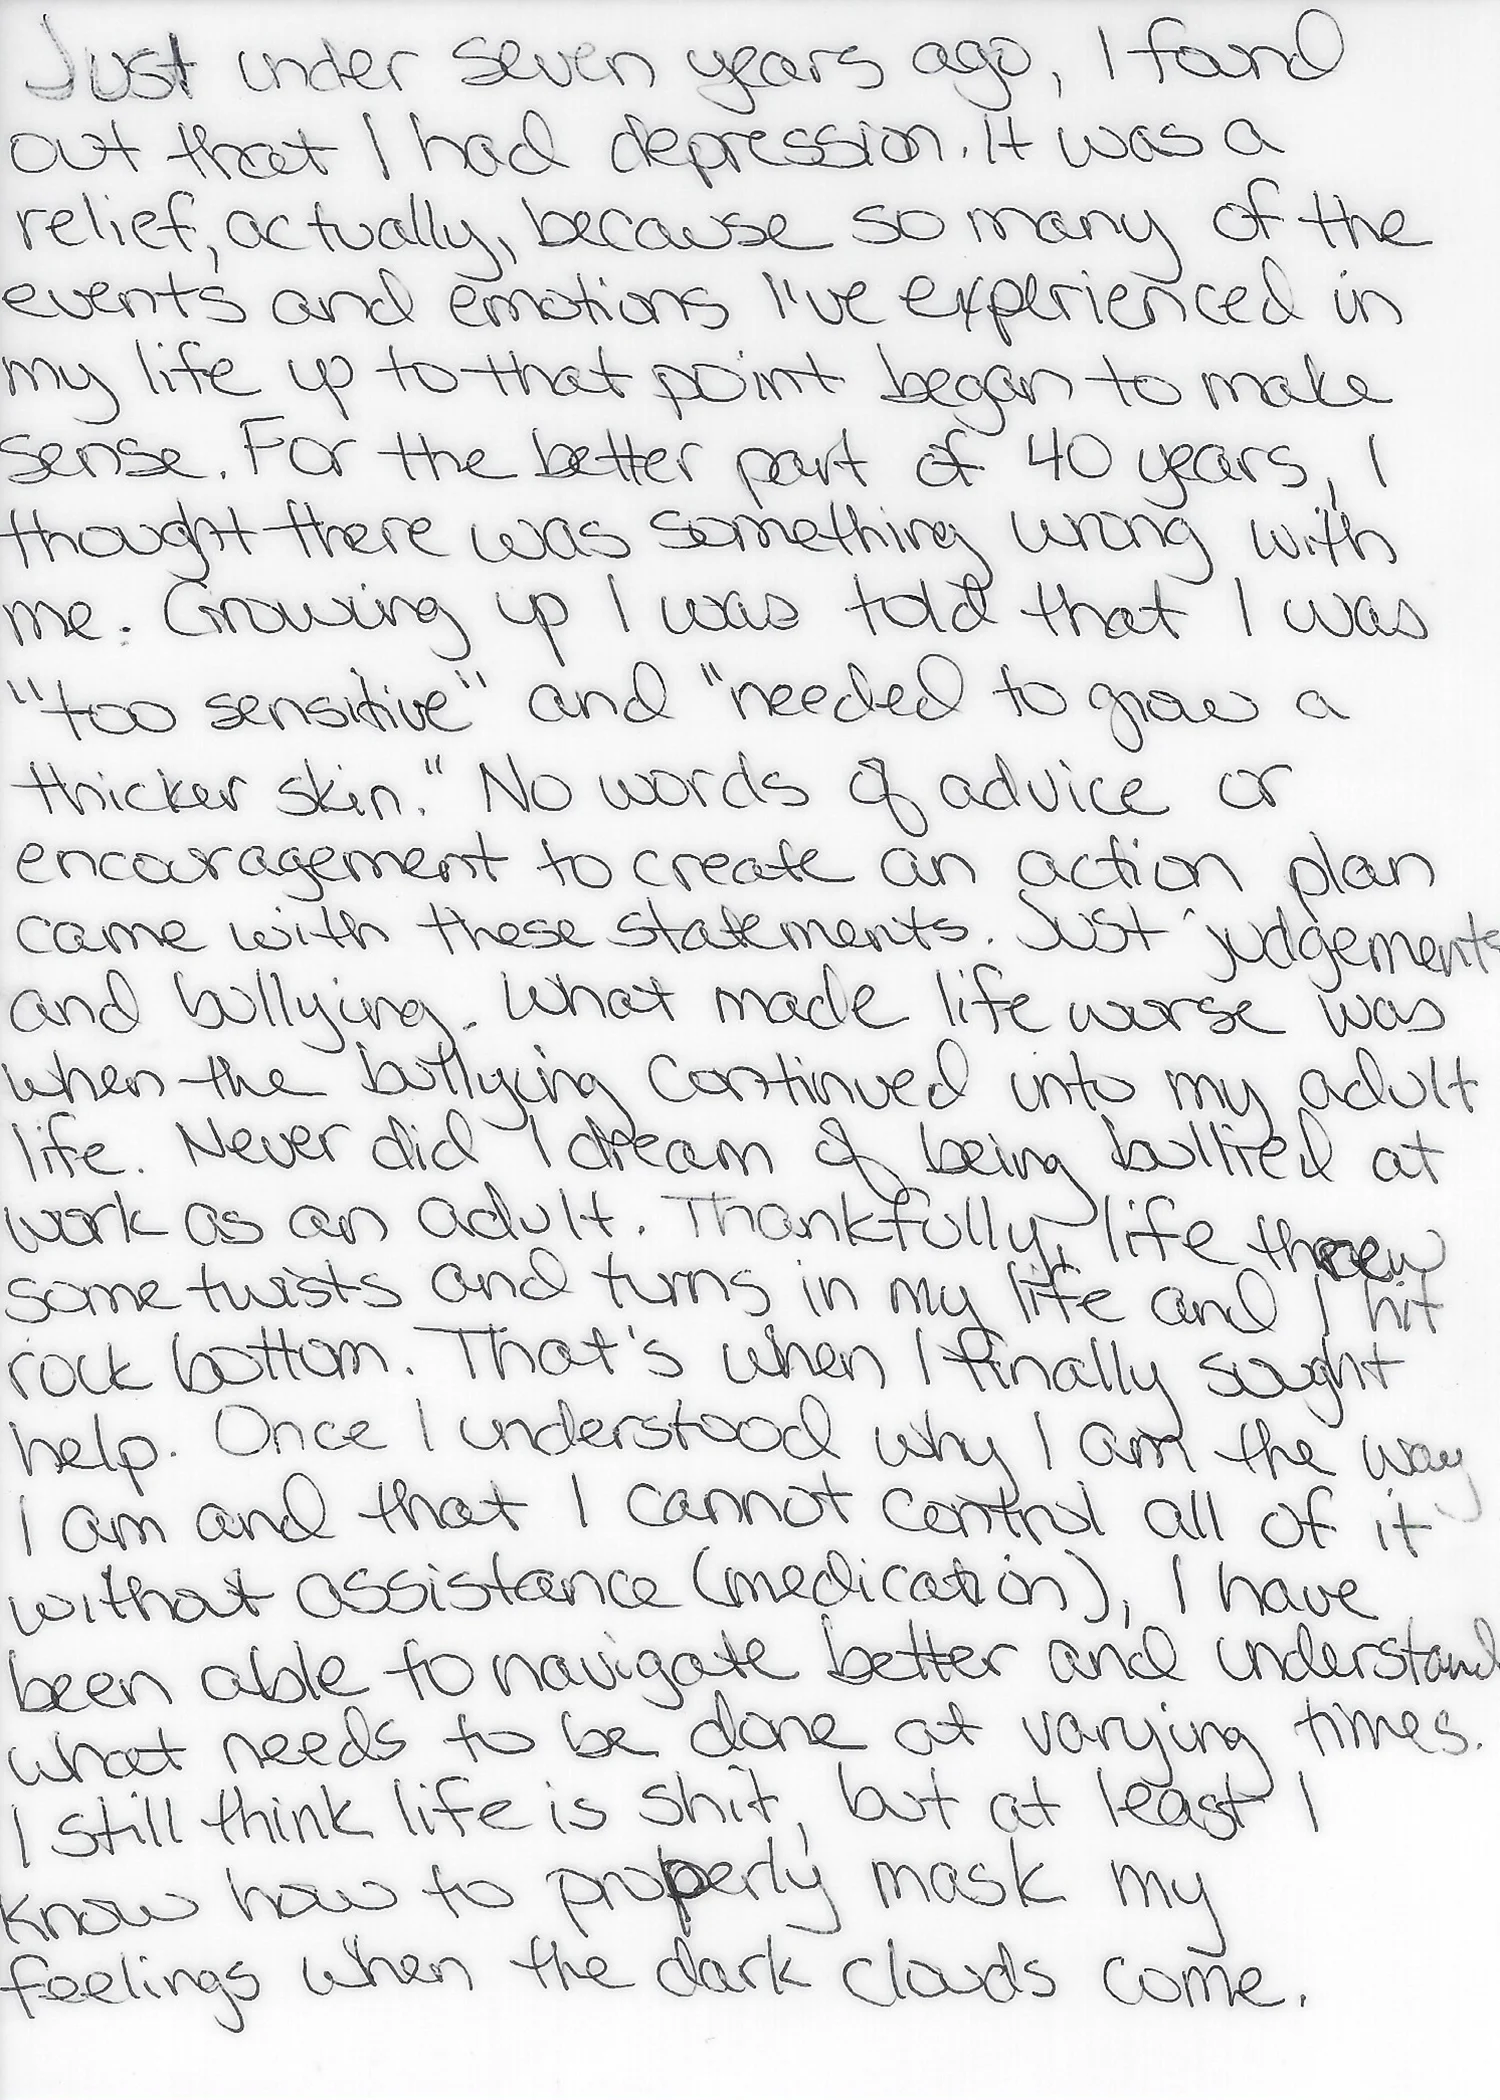 Just under seven years ago, I found
out that I had depression. It was a
relief, actually, because so many of the
events and emotions I've experienced in
my life up to that point began to make
sense. For the better part of 40 years, I
thought there was something wrong with
me. Growing up I was told that I was
"too sensitive" and "needed to grow a
thicker skin." No words of advice or
encouragement to create an action plan
came with these statements. Just judgements
and bullying. What made life worse was
when the bullying continued into my adult
life. Never did I dream of being bullied at
work as an adult. Thankfully, life threw
some twists and turns in my life and I hit
rock bottom. That's when I finally sought
help. Once I understood why I am the way
I am and that I cannot control all of it
without assistance (medication), I have
been able to navigate better and understand
what needs to be done at varying times.
I still think life is shit, but at least I
know how to properly mask my
feelings when the dark clouds come.